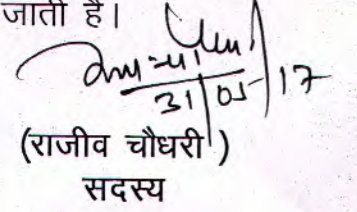 जाती है।
31/05/17
(राजीव चौधरी)
सदस्य